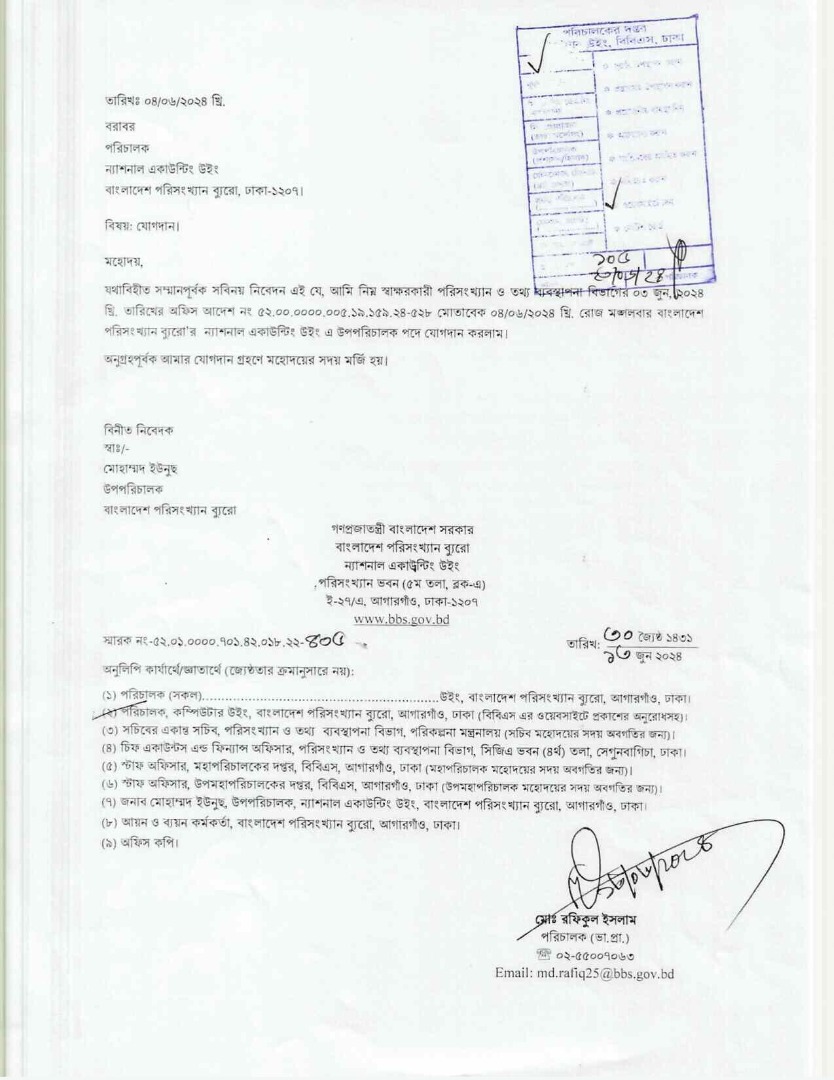 পরিচালকের দপ্তর
উইং, বিবিএস, ঢাকা
তারিখঃ ০৪/০৬/২০২৪ খ্রি.
বরাবর
পরিচালক
ন্যাশনাল একাউন্টিং উইং
বাংলাদেশ পরিসংখ্যান ব্যুরো, ঢাকা-১২০৭।
বিষয়: যোগদান।
মহোদয়,
যথাবিহীত সম্মানপূর্বক সবিনয় নিবেদন এই যে, আমি নিম্ন স্বাক্ষরকারী পরিসংখ্যান ও তথ্য ব্যবস্থাপনা বিভাগের ০৩ জুন, ২০২৪
খ্রি. তারিখের অফিস আদেশ নং ৫২.০০.০০০০.০০৫.১৯.১৫৯.২৪-৫২৮ মোতাবেক ০৪/০৬/২০২৪ খ্রি. রোজ মঙ্গলবার বাংলাদেশ
পরিসংখ্যান ব্যুরো'র ন্যাশনাল একাউন্টিং উইং এ উপপরিচালক পদে যোগদান করলাম।
অনুগ্রহপূর্বক আমার যোগদান গ্রহণে মহোদয়ের সদয় মর্জি হয়।
বিনীত নিবেদক
স্বাঃ/-
মোহাম্মদ ইউনুছ
উপপরিচালক
বাংলাদেশ পরিসংখ্যান ব্যুরো
গণপ্রজাতন্ত্রী বাংলাদেশ সরকার
বাংলাদেশ পরিসংখ্যান ব্যুরো
ন্যাশনাল একাউন্টিং উইং
পরিসংখ্যান ভবন (৫ম তলা, ব্লক-এ)
ই-২৭/এ, আগারগাঁও, ঢাকা-১২০৭
www.bbs.gov.bd
স্মারক নং-৫২.০১.০০০০.৭০১.৪২.০১৮.২২-৪০৫
তারিখ: ৩০ জ্যৈষ্ঠ ১৪৩১
১৩ জুন ২০২৪
অনুলিপি কার্যার্থে/জ্ঞাতার্থে (জ্যেষ্ঠতার ক্রমানুসারে নয়):
(১) পরিচালক (সকল)..............................................উইং, বাংলাদেশ পরিসংখ্যান ব্যুরো, আগারগাঁও, ঢাকা।
(২) পরিচালক, কম্পিউটার উইং, বাংলাদেশ পরিসংখ্যান ব্যুরো, আগারগাঁও, ঢাকা (বিবিএস এর ওয়েবসাইটে প্রকাশের অনুরোধসহ)।
(৩) সচিবের একান্ত সচিব, পরিসংখ্যান ও তথ্য ব্যবস্থাপনা বিভাগ, পরিকল্পনা মন্ত্রনালয় (সচিব মহোদয়ের সদয় অবগতির জন্য)।
(৪) চিফ একাউন্টস এন্ড ফিন্যান্স অফিসার, পরিসংখ্যান ও তথ্য ব্যবস্থাপনা বিভাগ, সিজিএ ভবন (৪র্থ) তলা, সেগুনবাগিচা, ঢাকা।
(৫) স্টাফ অফিসার, মহাপরিচালকের দপ্তর, বিবিএস, আগারগাঁও, ঢাকা (মহাপরিচালক মহোদয়ের সদয় অবগতির জন্য)।
(৬) স্টাফ অফিসার, উপমহাপরিচালকের দপ্তর, বিবিএস, আগারগাঁও, ঢাকা (উপমহাপরিচালক মহোদয়ের সদয় অবগতির জন্য)।
(৭) জনাব মোহাম্মদ ইউনুছ, উপপরিচালক, ন্যাশনাল একাউন্টিং উইং, বাংলাদেশ পরিসংখ্যান ব্যুরো, আগারগাঁও, ঢাকা।
(৮) আয়ন ও ব্যয়ন কর্মকর্তা, বাংলাদেশ পরিসংখ্যান ব্যুরো, আগারগাঁও, ঢাকা।
(৯) অফিস কপি।
মোঃ রফিকুল ইসলাম
পরিচালক (ভা.প্রা.)
☏ ০২-৫৫০০৭০৬৩
Email: md.rafiq25@bbs.gov.bd